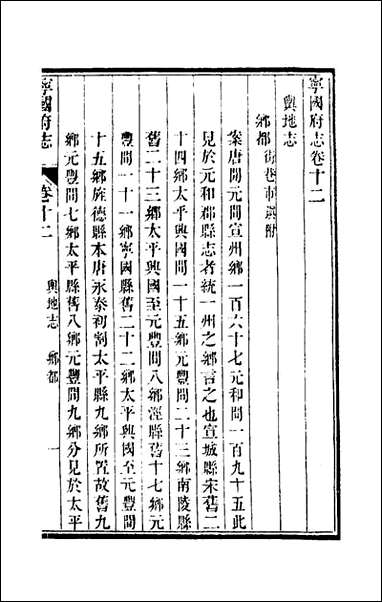 寧國府志卷十二
輿地志
鄉都 街巷市鎮附
案唐開元間宣州鄉一百六十七元和間一百九十五此
見於元和郡縣志者統一州之鄉言之也宣城縣宋舊二
十四鄉太平興國間一十五鄉元豐間二十三鄉南陵縣
舊二十三鄉太平興國至元豐間八鄉涇縣舊十七鄉元
豐間一十一鄉寧國縣舊二十二鄉太平興國至元豐間
十五鄉旌德縣本唐永泰初割太平縣九鄉所置故舊九
鄉元豐間七鄉太平縣舊八鄉元豐間九鄉分見於太平
寧國府志
卷十二
輿地志 鄉都
一